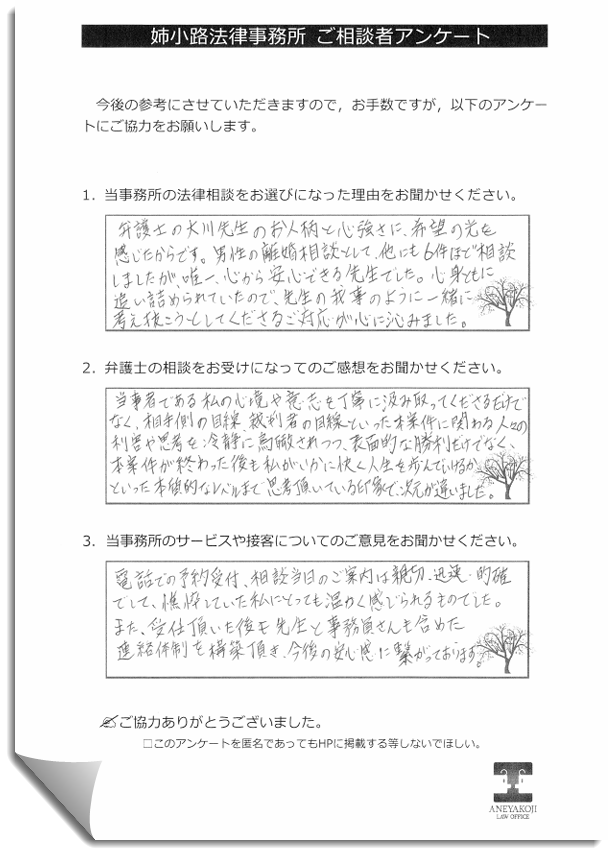 姉小路法律事務所 ご相談者アンケート
今後の参考にさせていただきますので，お手数ですが，以下のアンケー
トにご協力をお願いします。
1．当事務所の法律相談をお選びになった理由をお聞かせください。
弁護士の大川先生のお人柄と心強さに、希望の光を
感じたからです。男性の離婚相談として、他にも6件ほど相談
しましたが、唯一、心から安心できる先生でした。心身ともに
追い詰められていたので、先生の我事のように一緒に
考え抜こうとしてくださるご対応が心に沁みました。
2．弁護士の相談をお受けになってのご感想をお聞かせください。
当事者である私の心境や意志を丁寧に汲み取ってくださるだけで
なく、相手側の目線、裁判者の目線といった本案件に関わる人々の
利害や思考を冷静に鳥瞰されつつ、表面的な勝利だけでなく、
本案件が終わった後も私がいかに快く人生を歩んでいけるか
といった本質的なレベルまで思考頂いている印象で、次元が違いました。
3．当事務所のサービスや接客についてのご意見をお聞かせください。
電話での予約受付、相談当日のご案内は親切・迅速・的確
でして、憔悴していた私にとっても温かく感じられるものでした。
また、受任頂いた後も先生と事務員さんも含めた
連絡体制を構築頂き、今後の安心感に繋がっております。
ご協力ありがとうございました。
□このアンケートを匿名であってもHPに掲載する等しないでほしい。
ANEYAKOJI
LAW OFFICE